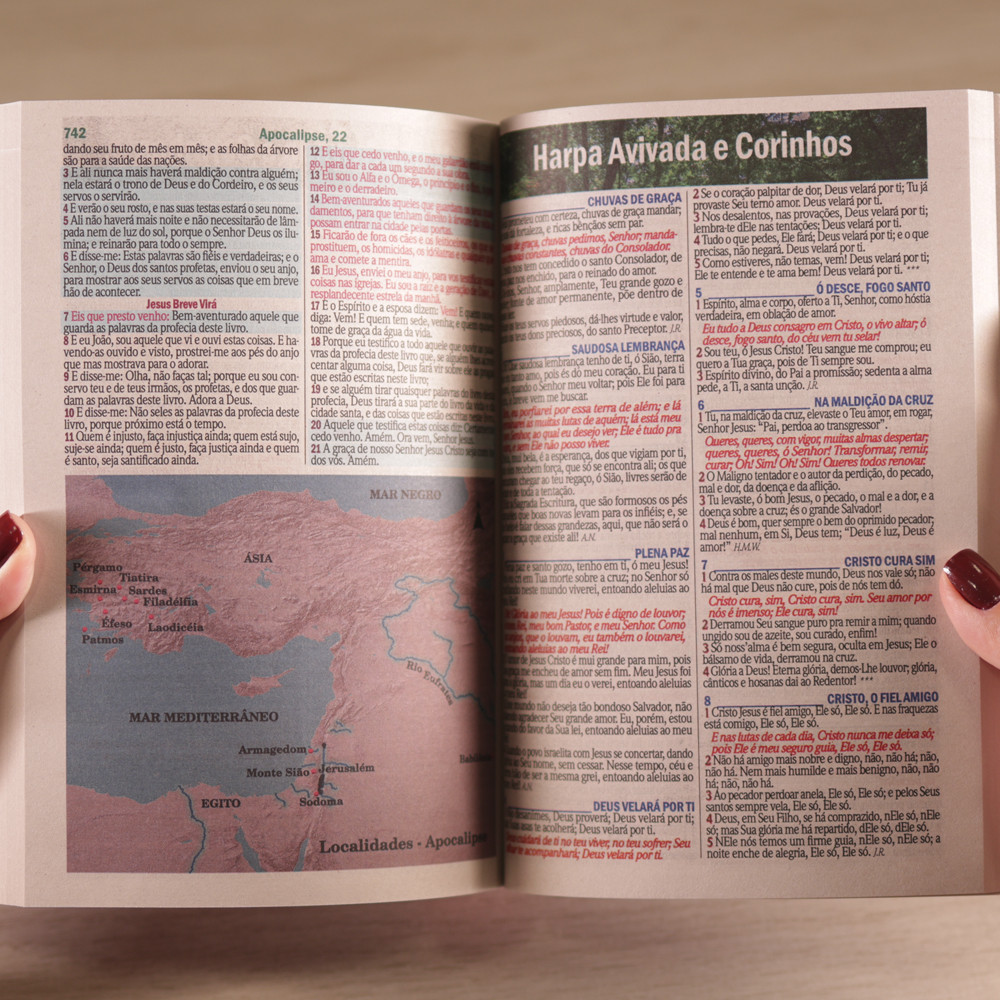 742
Apocalipse, 22
dando seu fruto de mês em mês; e as folhas da árvore
são para a saúde das nações.
3 E ali nunca mais haverá maldição contra alguém;
nela estará o trono de Deus e do Cordeiro, e os seus
servos o servirão.
4 E verão o seu rosto, e nas suas testas estará o seu nome.
5 Ali não haverá mais noite e não necessitarão de lâm-
pada nem de luz do sol, porque o Senhor Deus os ilu-
mina; e reinarão para todo o sempre.
6 E disse-me: Estas palavras são fiéis e verdadeiras; e o
Senhor, o Deus dos santos profetas, enviou o seu anjo,
para mostrar aos seus servos as coisas que em breve
hão de acontecer.
Jesus Breve Virá
7 Eis que presto venho: Bem-aventurado aquele que
guarda as palavras da profecia deste livro.
8 E eu João, sou aquele que vi e ouvi estas coisas. E ha-
vendo-as ouvido e visto, prostrei-me aos pés do anjo
que mas mostrava para o adorar.
9 E disse-me: Olha, não faças tal; porque eu sou con-
servo teu e de teus irmãos, os profetas, e dos que guar-
dam as palavras deste livro. Adora a Deus.
10 E disse-me: Não seles as palavras da profecia deste
livro, porque próximo está o tempo.
11 Quem é injusto, faça injustiça ainda; quem está sujo,
suje-se ainda; quem é justo, faça justiça ainda e quem
é santo, seja santificado ainda.
12 E eis que cedo venho, e o meu galardão
go, para dar a cada um segundo a sua obra.
13 Eu sou o Alfa e o Ômega, o princípio e o fim, o pri-
meiro e o derradeiro.
14 Bem-aventurados aqueles que guardam os seus man-
damentos, para que tenham direito à árvore
possam entrar na cidade pelas portas.
15 Ficarão de fora os cães e os feiticeiros,
prostituem, os homicidas, os idólatras e qualquer
ama e comete a mentira.
16 Eu Jesus, enviei o meu anjo, para vos testificar
coisas nas igrejas. Eu sou a raiz e a geração de Davi,
resplandecente estrela da manhã.
17 E o Espírito e a esposa dizem: Vem! E quem
diga: Vem! E quem tem sede, venha; e quem
tome de graça da água da vida.
18 Porque eu testifico a todo aquele que ouvir as pala-
vras da profecia deste livro que, se alguém lhes acres-
centar alguma coisa, Deus fará vir sobre ele as pragas
que estão escritas neste livro;
19 e se alguém tirar quaisquer palavras do livro
profecia, Deus tirará a sua parte do livro da vida e
cidade santa, e das coisas que estão escritas
20 Aquele que testifica estas coisas diz:
cedo venho. Amém. Ora vem, Senhor Jesus.
21 A graça de nosso Senhor Jesus Cristo seja
dos vós. Amém.
MAR NEGRO
ÁSIA
Pérgamo
Tiatira
Esmirna
Sardes
Filadélfia
Éfeso
Laodicéia
Patmos
Rio Eufrates
MAR MEDITERRÂNEO
Armagedom
Monte Sião
Jerusalém
EGITO
Sodoma
Localidades - Apocalipse
Harpa Avivada e Corinhos
CHUVAS DE GRAÇA
com certeza, chuvas de graça mandar;
fortaleza, e ricas bênçãos sem par.
de graça, chuvas pedimos, Senhor; manda-
constantes, chuvas do Consolador.
nos tem concedido o santo Consolador, de
nos enchido, para o reinado do amor.
Senhor, amplamente, Teu grande gozo e
de amor permanente, põe dentro de
teus servos piedosos, dá-lhes virtude e valor,
os teus dons preciosos, do santo Preceptor. J.R.
SAUDOSA LEMBRANÇA
saudosa lembrança tenho de ti, ó Sião, terra
amo, pois és do meu coração. Eu para ti
quando o Senhor meu voltar; pois Ele foi para
breve vem me buscar.
porfiarei por essa terra de além; e lá
as muitas lutas de aquém; lá está meu
Senhor, ao qual eu desejo ver; Ele é tudo pra
sem Ele não posso viver.
bela, é a esperança, dos que vigiam por ti,
recebem força, que só se encontra ali; os que
chegar ao teu regaço, ó Sião, livres serão de
toda a tentação.
Sagrada Escritura, que são formosos os pés
que boas novas levam para os infiéis; e, se
falar dessas grandezas, aqui, que não será o
graça que existe ali! A.N.
PLENA PAZ
paz e santo gozo, tenho em ti, ó meu Jesus!
em Tua morte sobre a cruz; no Senhor só
neste mundo viverei, entoando aleluias ao
Glória ao meu Jesus! Pois é digno de louvor;
Rei, meu bom Pastor, e meu Senhor. Como
que o louvam, eu também o louvarei,
aleluias ao meu Rei!
amor de Jesus Cristo é mui grande para mim, pois
me encheu de amor sem fim. Meu Jesus foi
glória, mas um dia eu o verei, entoando aleluias
mundo não deseja tão bondoso Salvador, não
agradecer Seu grande amor. Eu, porém, estou
do favor da Sua lei, entoando aleluias ao meu
o povo israelita com Jesus se concertar, dando
Seu nome, sem cessar. Nesse tempo, céu e
de ser a mesma grei, entoando aleluias ao
A.N.
DEUS VELARÁ POR TI
Deus proverá; Deus velará por ti;
asas te acolherá; Deus velará por ti.
de ti no teu viver, no teu sofrer; Seu
te acompanhará; Deus velará por ti.
2 Se o coração palpitar de dor, Deus velará por ti; Tu já
provaste Seu terno amor. Deus velará por ti.
3 Nos desalentos, nas provações, Deus velará por ti;
lembra-te dEle nas tentações; Deus velará por ti.
4 Tudo o que pedes, Ele fará; Deus velará por ti; e o que
precisas, não negará. Deus velará por ti.
5 Como estiveres, não temas, vem! Deus velará por ti;
Ele te entende e te ama bem! Deus velará por ti. ***
5 Ó DESCE, FOGO SANTO
1 Espírito, alma e corpo, oferto a Ti, Senhor, como hóstia
verdadeira, em oblação de amor.
Eu tudo a Deus consagro em Cristo, o vivo altar; ó
desce, fogo santo, do céu vem tu selar!
2 Sou teu, ó Jesus Cristo! Teu sangue me comprou; eu
quero a Tua graça, pois de Ti sempre sou.
3 Espírito divino, do Pai a promissão; sedenta a alma
pede, a Ti, a santa unção. J.R.
6 NA MALDIÇÃO DA CRUZ
1 Tu, na maldição da cruz, elevaste o Teu amor, em rogar,
Senhor Jesus: "Pai, perdoa ao transgressor".
Queres, queres, com vigor, muitas almas despertar;
queres, queres, ó Senhor! Transformar, remir,
curar; Oh! Sim! Oh! Sim! Queres todos renovar.
2 O Maligno tentador e o autor da perdição, do pecado,
mal e dor, da doença e da aflição.
3 Tu levaste, ó bom Jesus, o pecado, o mal e a dor, e a
doença sobre a cruz; és o grande Salvador!
4 Deus é bom, quer sempre o bem do oprimido pecador;
mal nenhum, em Si, Deus tem; "Deus é luz, Deus é
amor!" H.M.W.
7 CRISTO CURA SIM
1 Contra os males deste mundo, Deus nos vale só; não
há mal que Deus não cure, pois de nós tem dó.
Cristo cura, sim, Cristo cura, sim. Seu amor por
nós é imenso; Ele cura, sim!
2 Derramou Seu sangue puro pra remir a mim; quando
ungido sou de azeite, sou curado, enfim!
3 Só noss'alma é bem segura, oculta em Jesus; Ele o
bálsamo de vida, derramou na cruz.
4 Glória a Deus! Eterna glória, demos-Lhe louvor; glória,
cânticos e hosanas dai ao Redentor! ***
8 CRISTO, O FIEL AMIGO
1 Cristo Jesus é fiel amigo, Ele só, Ele só. E nas fraquezas
está comigo, Ele só, Ele só.
E nas lutas de cada dia, Cristo nunca me deixa só;
pois Ele é meu seguro guia, Ele só, Ele só.
2 Não há amigo mais nobre e digno, não, não há; não,
não há. Nem mais humilde e mais benigno, não, não
há; não, não há.
3 Ao pecador perdoar anela, Ele só, Ele só; e pelos Seus
santos sempre vela, Ele só, Ele só.
4 Deus, em Seu Filho, se há comprazido, nEle só, nEle
só; mas Sua glória me há repartido, dEle só, dEle só.
5 NEle nós temos um firme guia, nEle só, nEle só; a
noite enche de alegria, Ele só, Ele só. J.R.